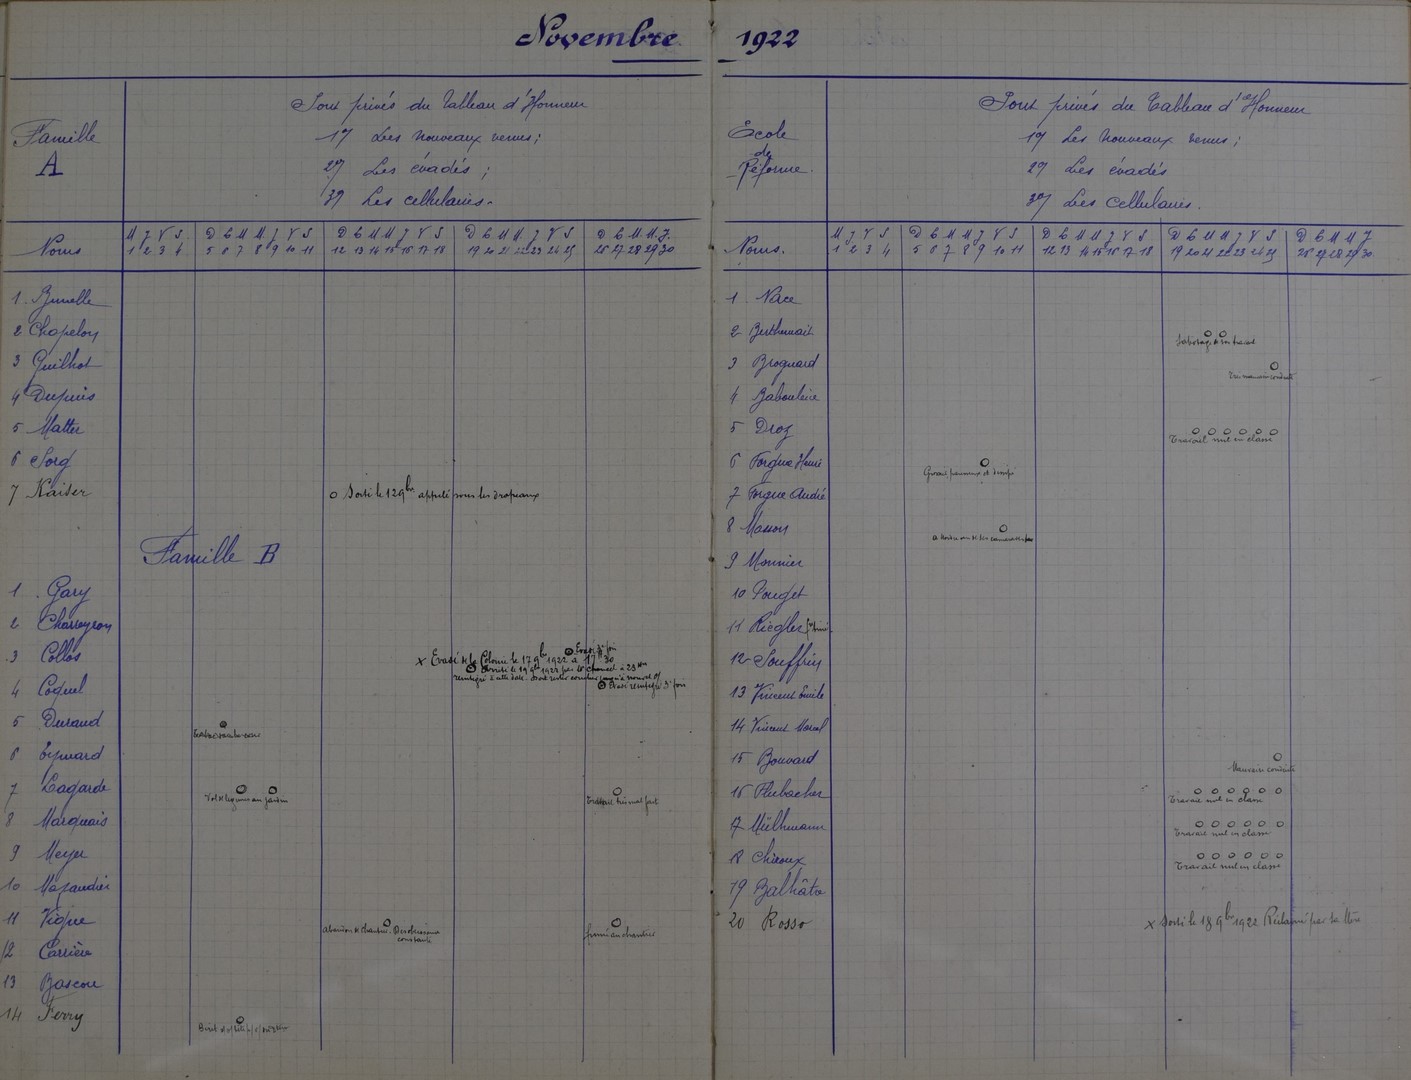 Novembre 1922
Famille A
Sont privés du Tableau d'Honneur
1º Les nouveaux venus ;
2º Les évadés ;
3º Les cellulaires.
Noms
M J V S D L M M J V S D L M M J V S D L M M J V S D L M M J
1 2 3 4 5 6 7 8 9 10 11 12 13 14 15 16 17 18 19 20 21 22 23 24 25 26 27 28 29 30
1 Brunelle
2 Chapelon
3 Guilhot
4 Dupuis
5 Matter
6 Sorg
7 Kaiser
Sorti le 12 9bre appelé sous les drapeaux
Famille B
1 Gary
2 Charreyron
3 Collos
x Evasé de la Colonie le 17 9bre 1922 à 17h30
Evasé 2e fois
4 Coquel
Evasé réintégré 3e fois
5 Durand
6 Eymard
7 Lagarde
Vol de légumes au jardin
Travail très mal fait
8 Marquais
9 Meyer
10 Mazaudier
11 Vigue
Abandon de chantier. Désobéissance
constante
fumé au chantier
12 Carrière
13 Bascou
14 Ferry
École de Réforme.
Sont privés du Tableau d'Honneur
1º Les nouveaux venus ;
2º Les évadés
3º Les Cellulaires.
Noms.
M J V S D L M M J V S D L M M J V S D L M M J V S D L M M J
1 2 3 4 5 6 7 8 9 10 11 12 13 14 15 16 17 18 19 20 21 22 23 24 25 26 27 28 29 30
1 Nace
2 Berthomait
Sabotage de son travail
3 Brognard
Très mauvaise conduite
4 Babouleine
5 Droz
Travail nul en classe
6 Forgue Henri
7 Forgue André
8 Masson
9 Monnier
10 Pouget
11 Riegler
12 Souffrin
13 Vincent Emile
14 Vincent Marcel
15 Bouvard
Mauvaise conduite
16 Flubacher
Travail nul en classe
17 Mülhmann
Travail nul en classe
18 Chiroux
Travail nul en classe
19 Balhâtre
20 Rosso
x Sorti le 18 9bre 1922 Réclamé par sa Mère